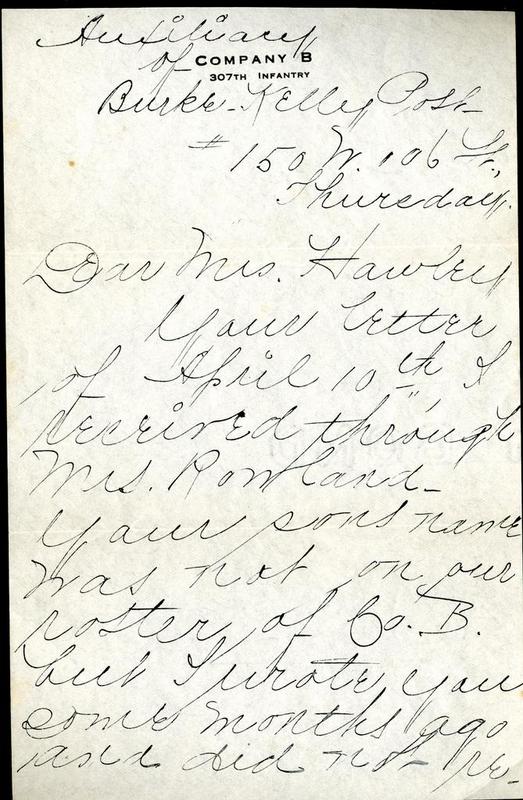 Auxiliary
of COMPANY B
307TH INFANTRY
Burke-Kelley Post
# 150 W. 106 St.,
Thursday.
Dear Mrs. Hawley
Your letter
of April 10th, I
received through
Mrs. Rowland-
Your sons name
was not on our
roster of Co. B.
but I wrote you
some months ago
and did not re-